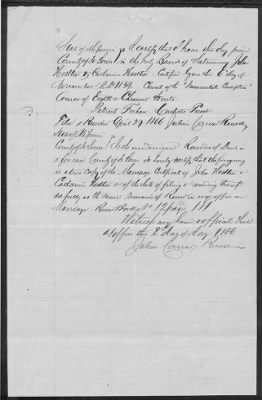 State of Missouri I Certify that I have this day joined
County of St Louis in the Holy Bonds of Matrimony John
Hostler & Catharine Certified by me the 6 day of
November A.D. Church of the "Immaculate Conception"
Corner of Eighth & Chesnut Streets
Patrick Catholic Priest
Filed & Recorded April 27 1866 Julius Conrad Recorder
State of Missouri
County of St Louis I the undersigned Recorder of Deeds in
& for said County of St Louis do hereby certify that the foregoing
is a true Copy of the Marriage Certificate of John &
and of the date of filing & recording thereof
as fully as the same remains of Record in my office in
Marriage Record Book No 12 page
Witness my hand & official Seal
at office this 2 day of May 1866
Julius Conrad Recorder